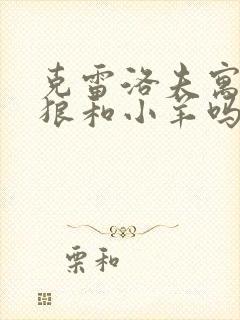 克雷洛夫寓
狼和小羊吗
栗和